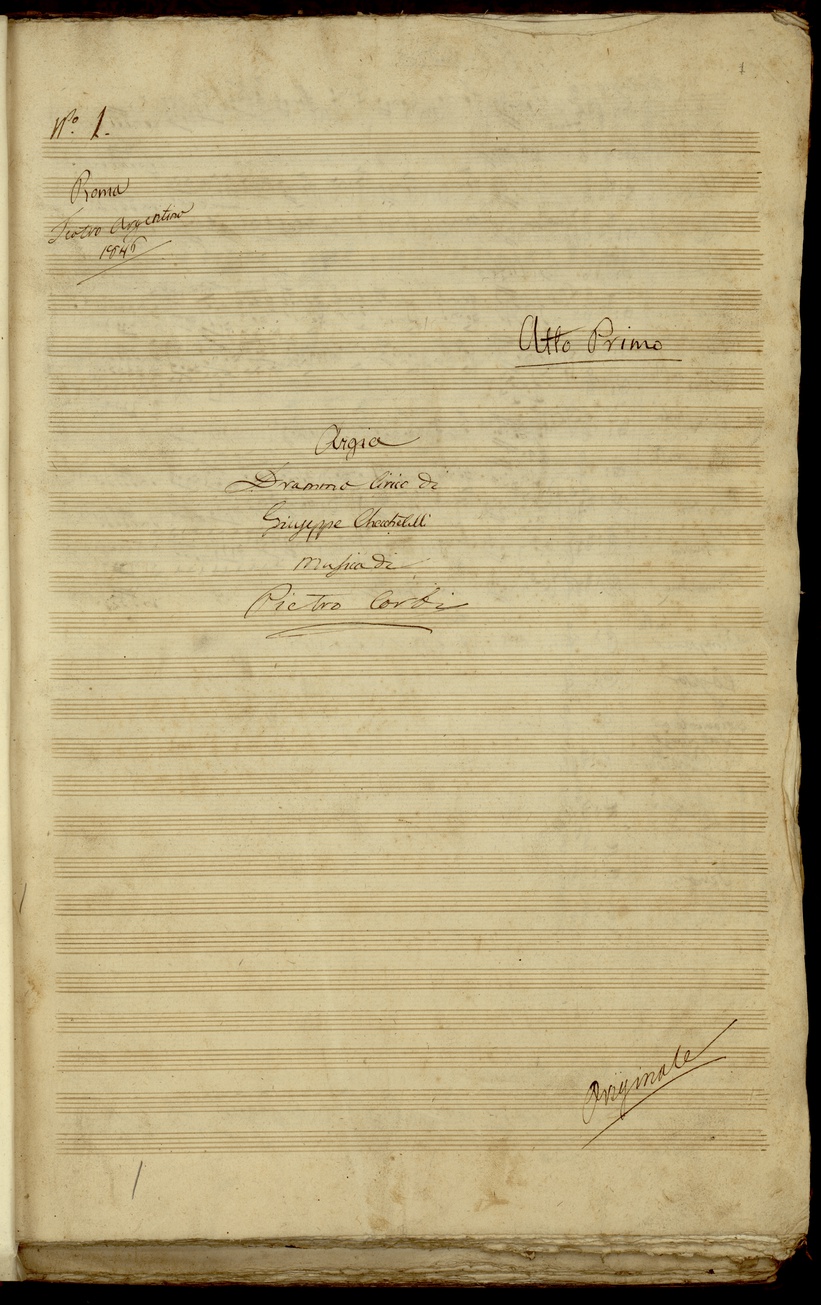 1
N.o 1.
Roma
Teatro Argentino
1846
Atto Primo
Argia
Dramma lirico di
Giuseppe Checchetelli
Musica di
Pietro Corbi
Originale